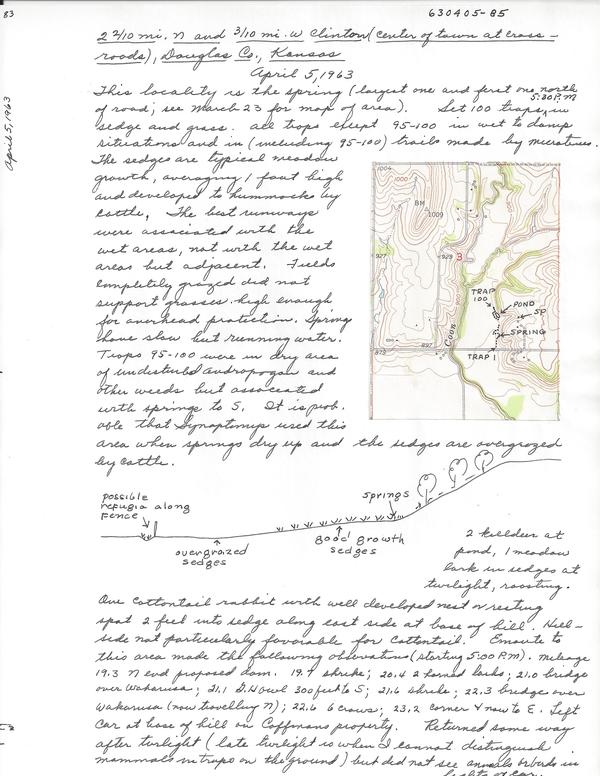 83
630405-85
2 2/10 mi. N and 3/10 mi. W Clinton (center of town at cross-
roads), Douglas Co., Kansas
April 5, 1963
April 5, 1963
This locality is the spring (largest one and first one north
of road; see March 23 for map of area). Set 100 traps, 5:30 P.M in
sedge and grass. all traps except 95-100 in wet to damp
situations and in (including 95-100) trails made by microtines.
The sedges are typical meadow
growth, averaging 1 foot high
and developed to hummocks by
cattle. The best runways
were associated with the
wet areas, not with the wet
areas but adjacent. Fields
completely grazed did not
support grasses high enough
for overhead protection. Spring
have slow but running water.
Traps 95-100 were in dry area
of undisturbed andropogon and
other weeds but associated
with springs to S. It is prob-
able that Synaptomys used this
area when springs dry up and the sedges are overgrazed
by cattle.
1004
1000
BM
1009
927
929
3
TRAP
100
POND
SP
SPRING
Coon
875
897
TRAP 1
possible
refugia along
fence
overgrazed
sedges
good growth
sedges
springs
2 killdeer at
pond, 1 meadow
lark in sedges at
twilight, roosting.
One cottontail rabbit with well developed nest or resting
spot 2 feet into sedge along east side at base of hill. Hill-
side not particularly favorable for cottontail. Enroute to
this area made the following observations (starting 5:00 P.M). mileage
19.3 N end proposed dam. 19.7 shrike; 20.4 2 horned larks; 21.0 bridge
over Wakarusa; 21.1 G.H owl 300 feet to S; 21.6 shrike; 22.3 bridge over
Wakarusa (now travelling N); 22.6 6 crows; 23.2 corner & now to E. Left
car at base of hill on Coffmans property. Returned same way
after twilight (late twilight is when I cannot distinguish
mammals in traps on the ground) but did not see animals or birds in
lights of car.